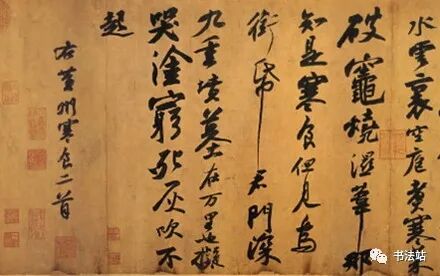 水雲裏空庖煮寒菜
破竈燒濕葦那
知是寒食但見烏
銜帋君門深
九重墳墓在万里也擬
哭塗窮死灰吹不
起
右黃州寒食二首
书法站